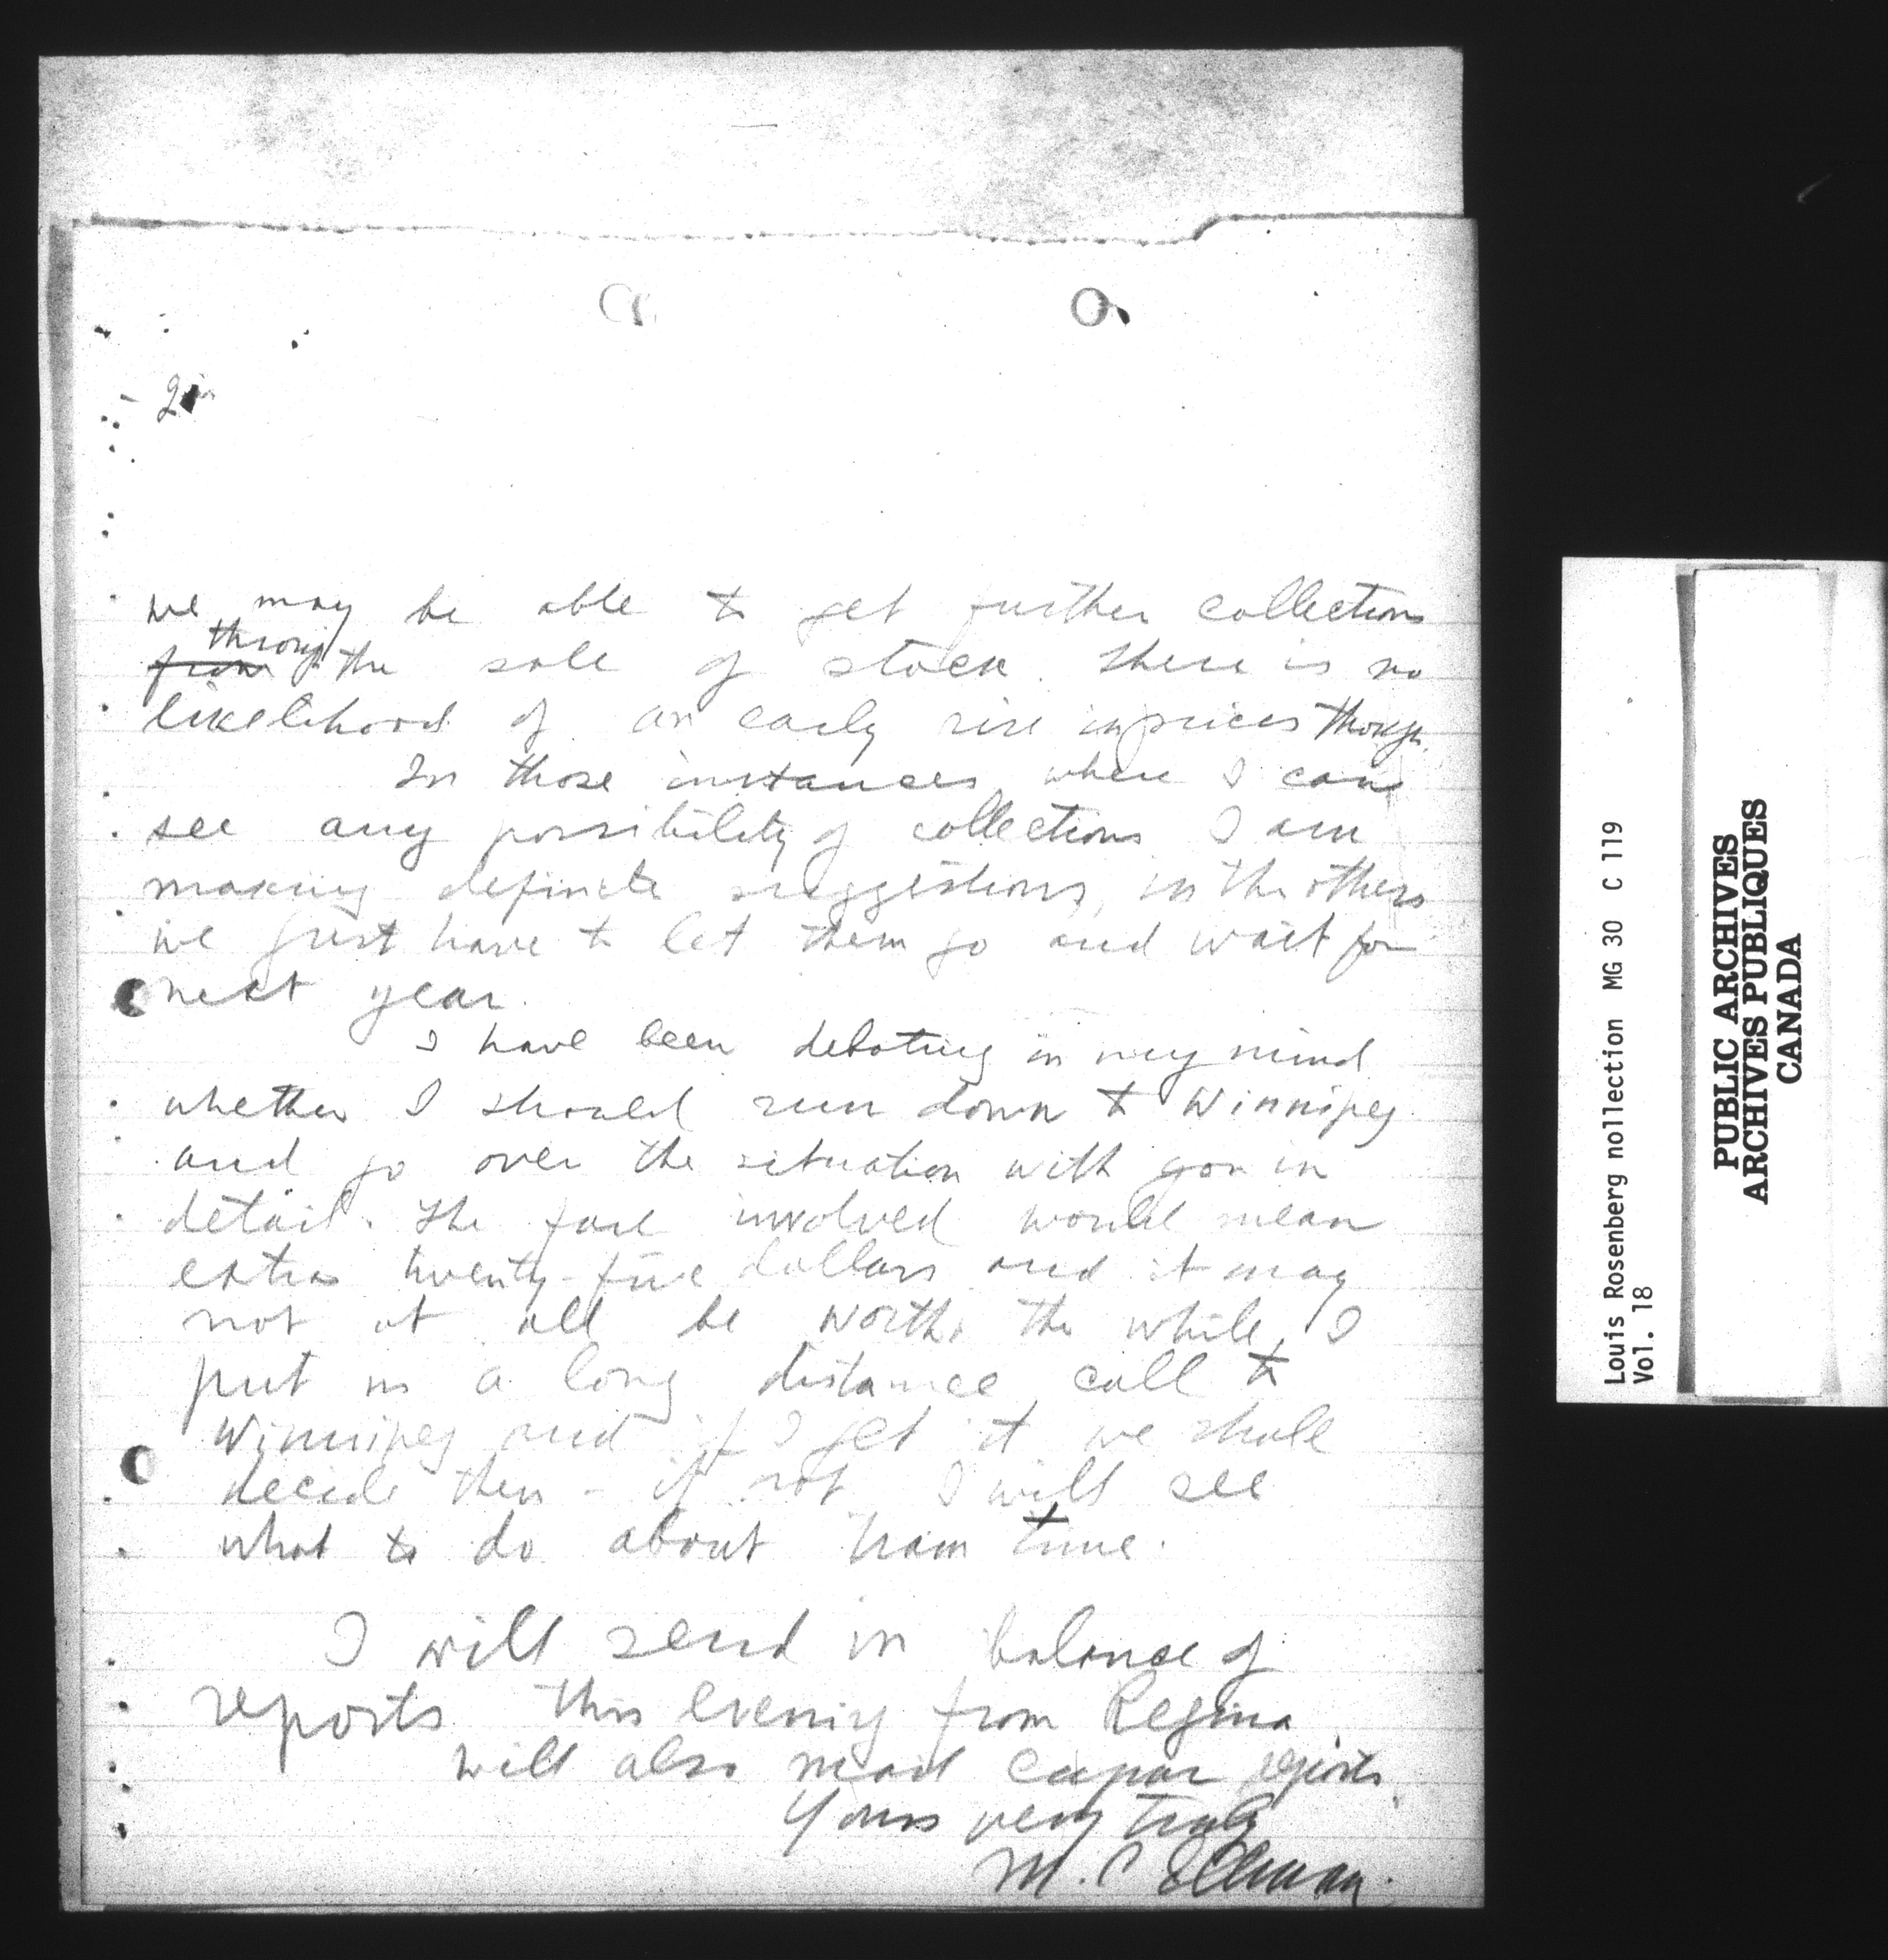 2
we may be able to get further collections
through
from the sale of stock. There is no
likelihood of an early rise in prices though.
In those instances where I can
see any possibility of collections I am
making definite suggestions, in the others
we just have to let them go and wait for
next year.
I have been debating in my mind
whether I should run down to Winnipeg
and go over the situation with you in
detail. The fare involved would mean
extra twenty-five dollars and it may
not at all be worth the while. I
put in a long distance call to
Winnipeg and if I get it we shall
decide then - if not I will see
what to do about train time.
I will send in balance of
reports this evening from Regina
will also mail reports.
Yours very truly
M. C.
Louis Rosenberg nollection MG 30 C 119
Vol. 18
PUBLIC ARCHIVES
ARCHIVES PUBLIQUES
CANADA